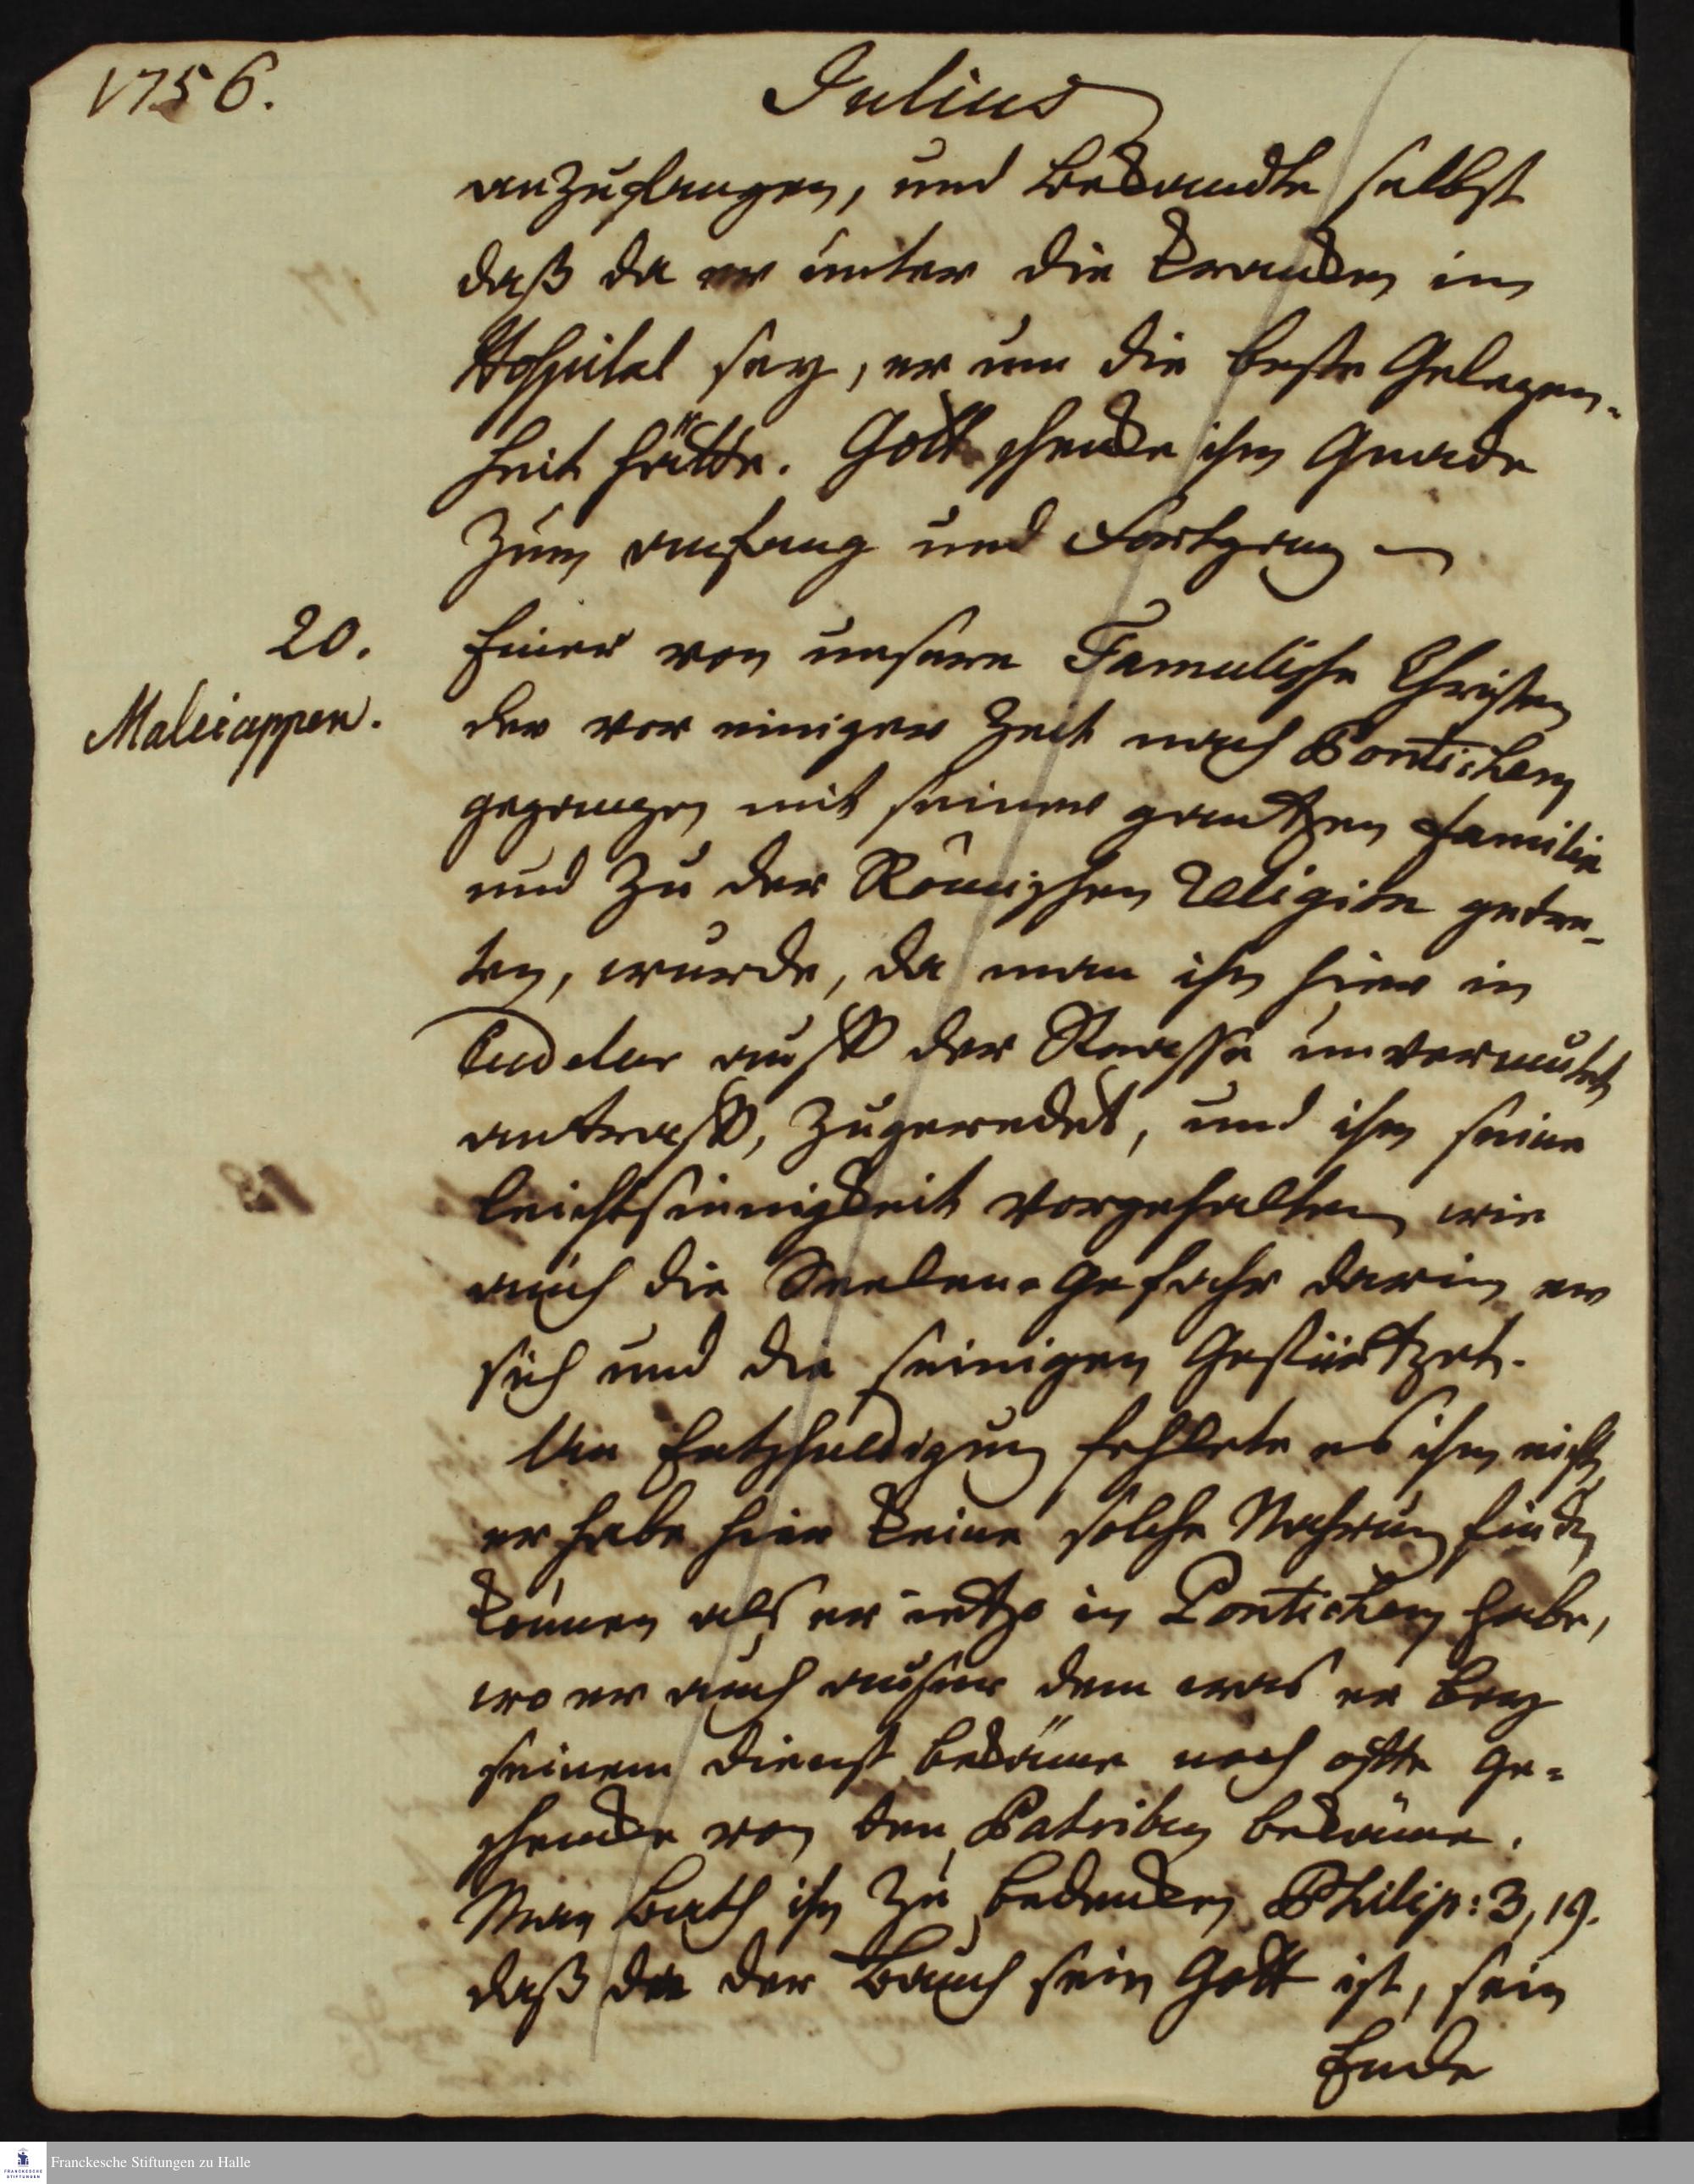 1756.
Julius
anzufangen, und bekandte selbst
daß da er unter die kranken im
Hospital sey, er nun die beste Gelegen-
heit hätte. Gott schenke ihm Gnade
zum anfang und Fortgang
20.
Maleiappen.
Einer von unsere Tamulische Christen
der vor einiger Zeit nach Pontichery
gegangen mit seiner gantzen familie
und zu der Römischen Religion getre-
ten, wurde, da man ihn hier in
Cudelur auff der Strasse unvermuthet
antraff, zugeredet, und ihm seine
leichtsinnigkeit vorgehalten wie
auch die Seelen-Gefahr darin er
sich und die seinigen Gestürtzet.
An Entschuldigung fehlete es ihm nicht,
er habe hier keine solche Nahrung finden
können als er ietzo in Pontichery habe,
wo er auch auser dem was er bey
seinem dienst bekäme noch offte ge-
schencke von den Patribus bekäme.
Man bath ihn zu bedenken Philip: 3, 19.
daß der Bauch sein Gott ist, sein
Ende
Franckesche Stiftungen zu Halle